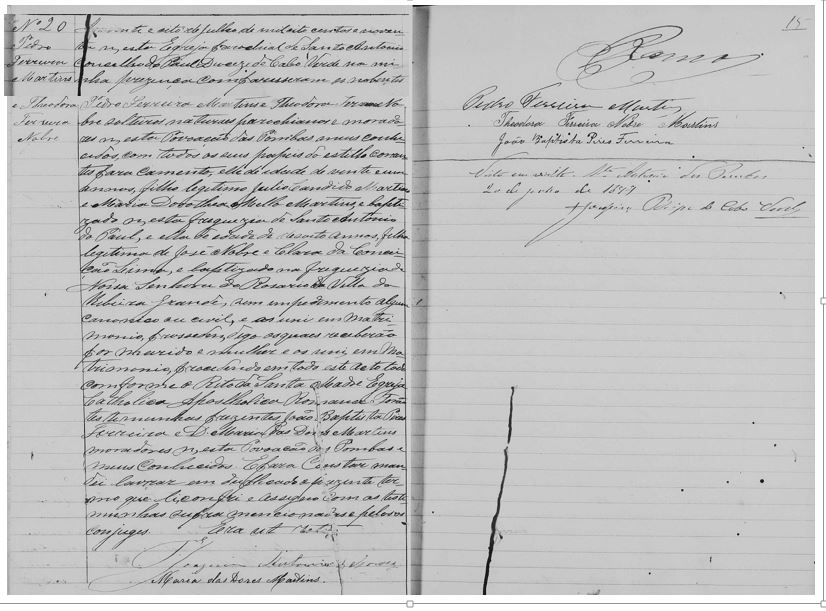 Nº 20
Pedro
Ferreira
e Martins
e Theodora
Ferreira
Nobre
e oito de julho de mil oito centos e noven
ta n'esta Egreja parochial de Santo Antonio
Conselho do Paul Diocese de Cabo Verde na mi
nha prezença compareceram os nobentes
Pedro Ferreira Martins e Theodora Ferreira No
bre solteiros naturaes parochianos e morado
res n'esta Povoação das Pombas meus conhe
cidos, com todos os seus papeis do estylo
para cazamento, elle de idade de vente e um
annos, filho legitimo Julio Candido Martins
e Maria Dorothea Martins e bapti
zado n'esta freguezia de Santo Antonio
do Paul, e ella de edade de annos, filha
legitima de José Nobre e Clara da Concei
ção Lima, e baptizada na freguezia de
Nossa Senhora do Rosario da Villa da
Ribeira Grande, sem empedimento algum
canonico ou civil, e os uni em Matri
monio, digo os quaes receberão
por marido e mulher e os uni em Ma
trimonio, procedendo em todo este acto todo
conforme o Rito da Santa Madre Egreja
Catholica Apostholica Romana. Foram
testemunhas prezentes João Baptista Pires
Ferreira e D. Maria das Dores Martins
moradores n'esta Povoação das Pombas e
meus Conhecidos. E para Constar man
dei lavrar em duplicado o prezente ter
mo que li conferi e assigno com as teste
munhas supra mencionadas e pelos
conjuges. Era ut
Joaquim Antonio de Moraes
Maria das Dores Martins.
15
Ramos
Pedro Ferreira Martins
Theodora Ferreira Nobre Martins
João Baptista Pires Ferreira
Visto em das Pombas
20 de julho de 1897
+ Joaquim Bispo de Cabo Verde